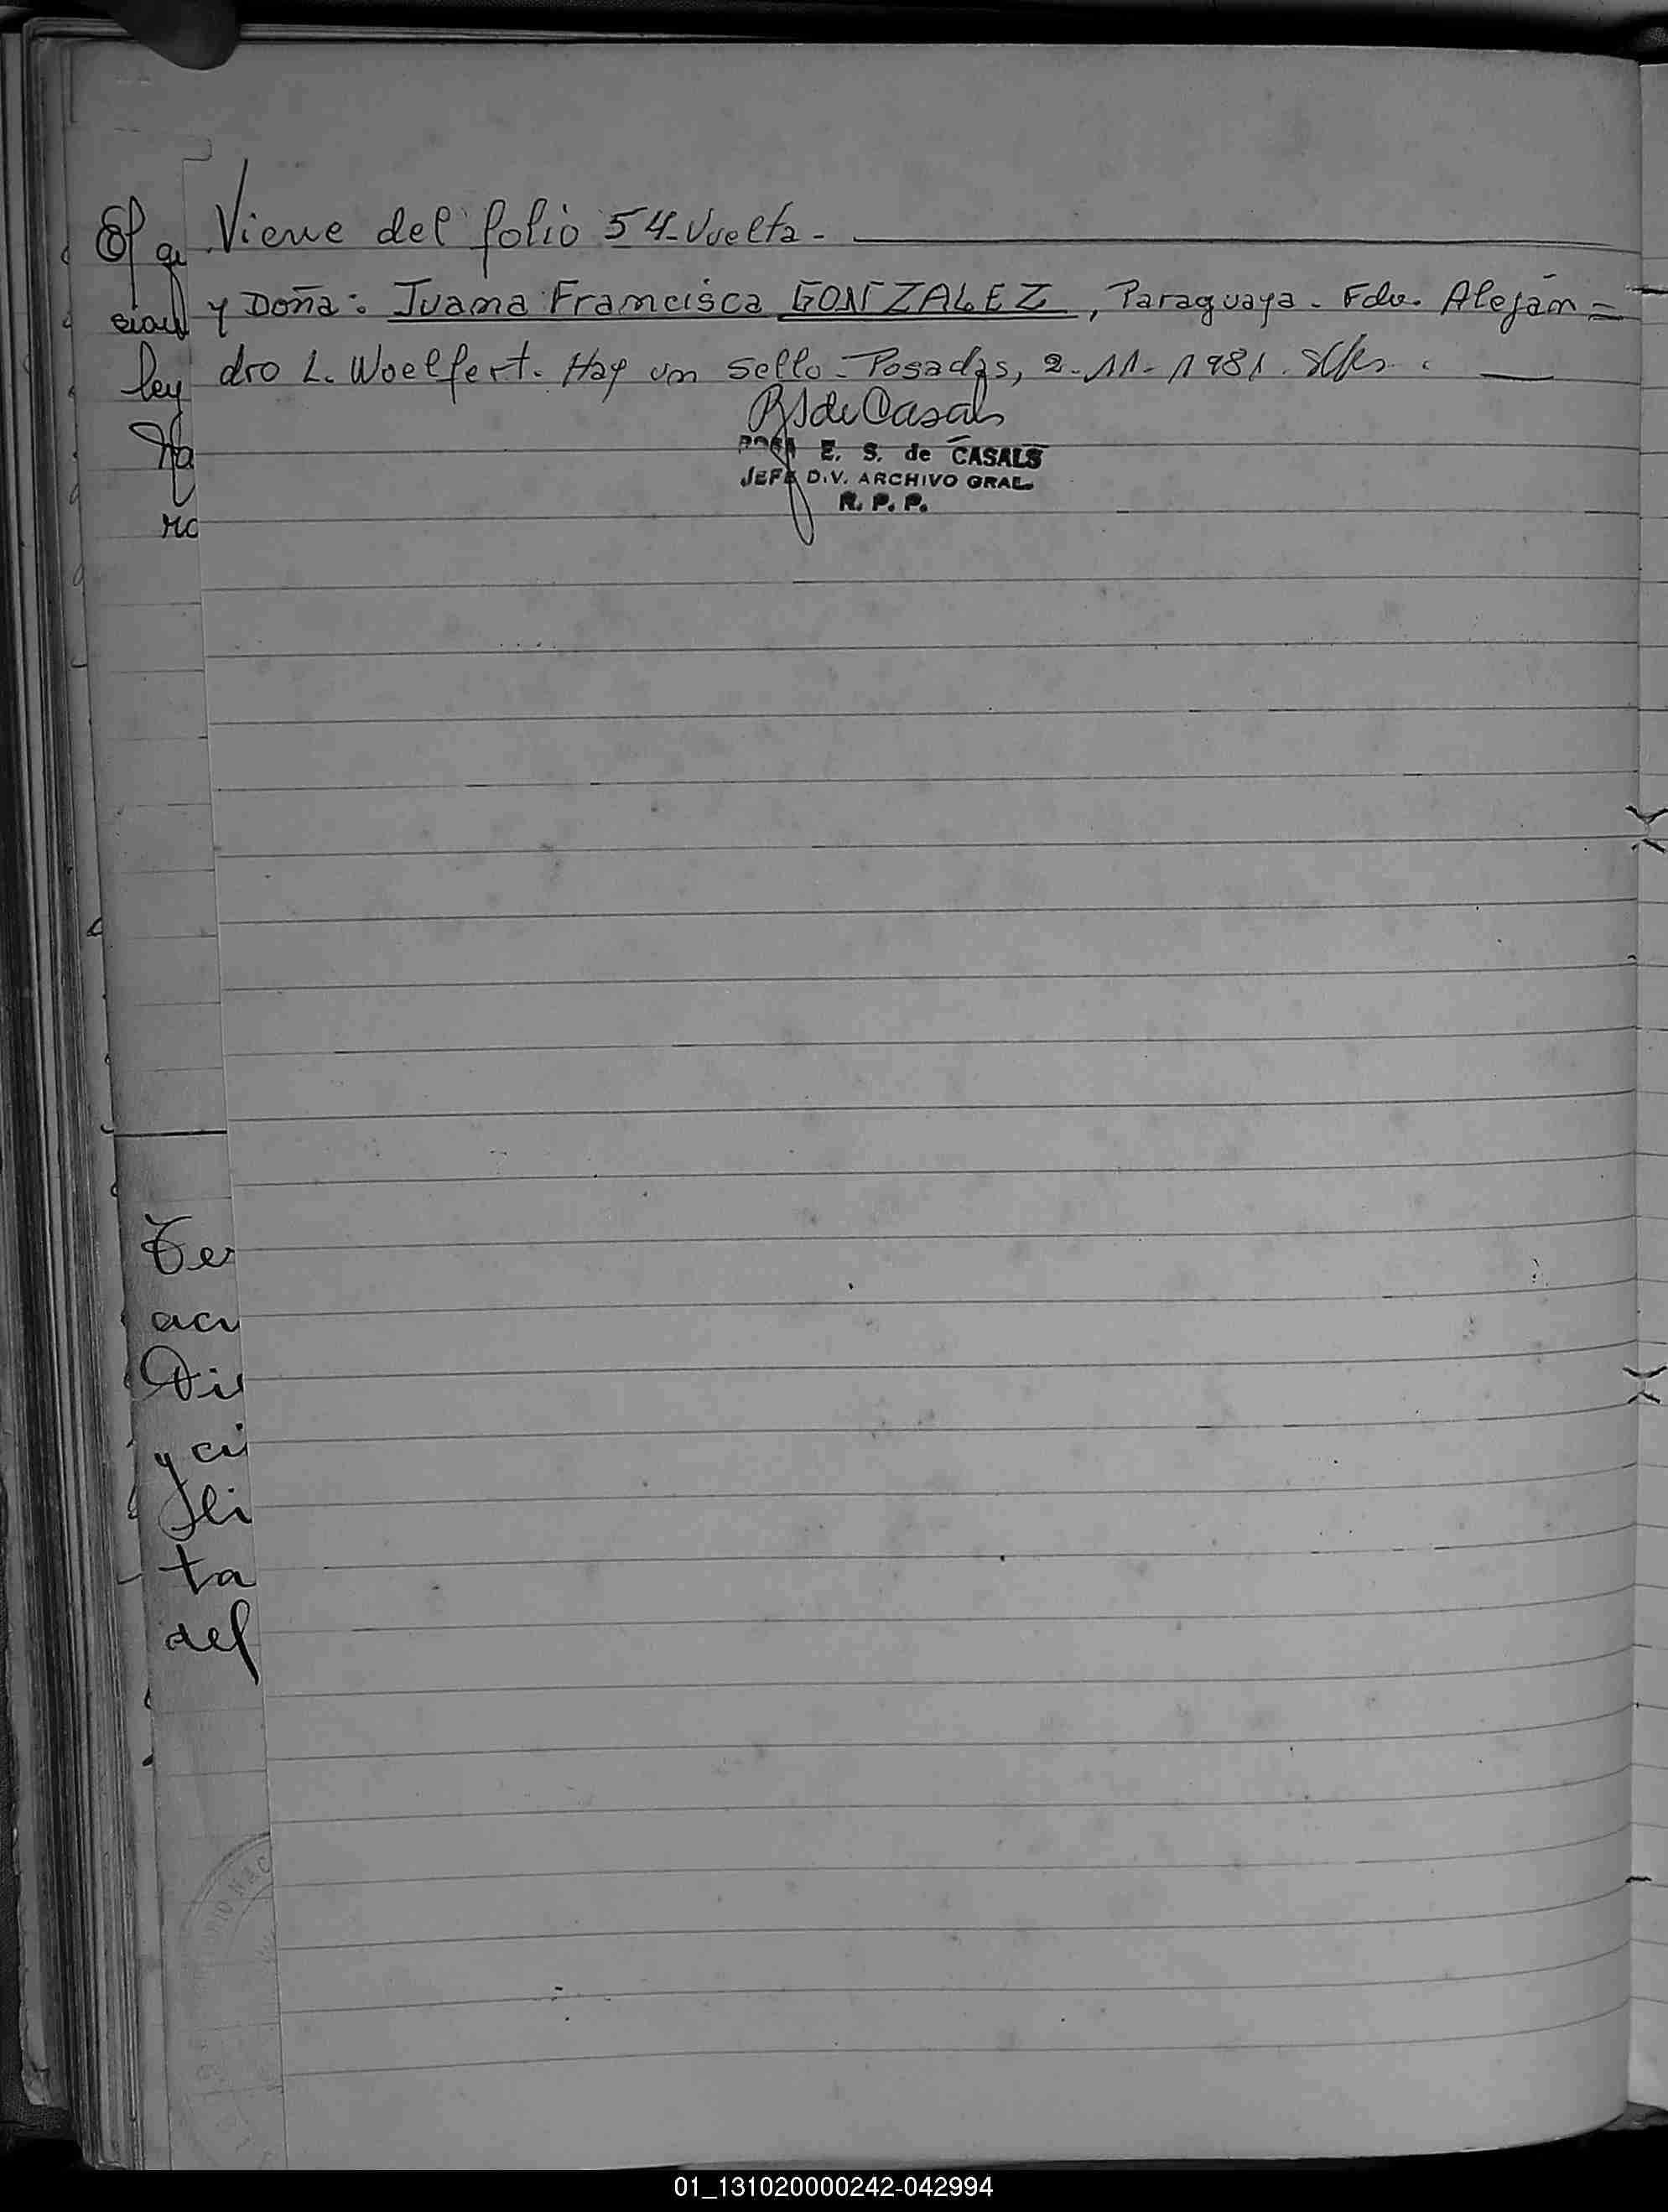 Viene del folio 54-Vuelta-
y Doña: Juana Francisca GONZALEZ, Paraguaya- Fdo. Alejan=
dro L. Woelfert. Hay un sello- Posadas, 2-11-1981.
E. S. de CASALS
JEFE DIV. ARCHIVO GRAL.
R. P. P.
ley
ro
Ter
acu
y ci
ta
del
01_131020000242-042994